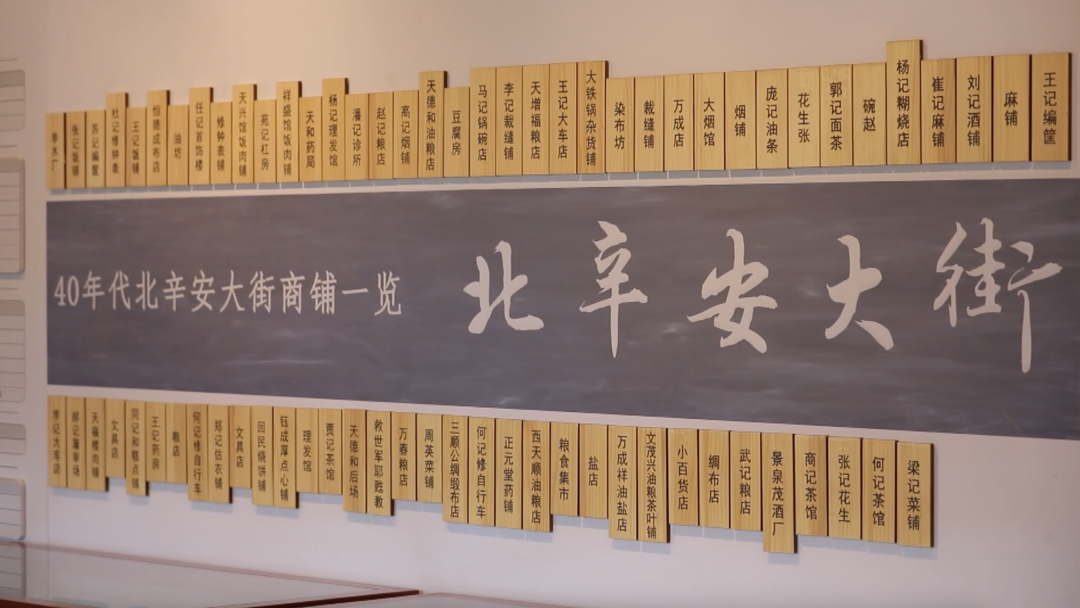 张记饭铺
苏记编筐
杜记修钟表
王记饭铺
恒德成布店
油坊
任记首饰楼
修钟表铺
天兴馆饭肉铺
苑记杠房
祥盛馆饭肉铺
天和药局
杨记理发馆
潘记诊所
赵记粮店
高记烟铺
天德和油粮店
豆腐房
马记锅碗店
李记裁缝铺
天增福粮店
王记大车店
大铁锅杂货铺
染布坊
裁缝铺
万成店
大烟馆
烟铺
庞记油条
花生张
郭记面茶
碗赵
杨记糊烧店
崔记麻铺
刘记酒铺
麻铺
王记编筐
40年代北辛安大街商铺一览
北辛安大街
李记大车店
天福楼肉铺
文具店
同记和糕点铺
王记药房
粮店
何记修自行车
郑记估衣铺
文具店
回民烧饼铺
钰成厚点心铺
理发馆
贾记茶馆
天德和后场
救世军耶稣教
万春粮店
周英菜铺
三顺公绸缎布店
何记修自行车
正元堂药铺
西天顺油粮店
粮食集市
盐店
万成祥油盐店
文茂兴油粮茶叶铺
小百货店
绸布店
武记粮店
景泉茂酒厂
商记茶馆
张记花生
何记茶馆
梁记菜铺